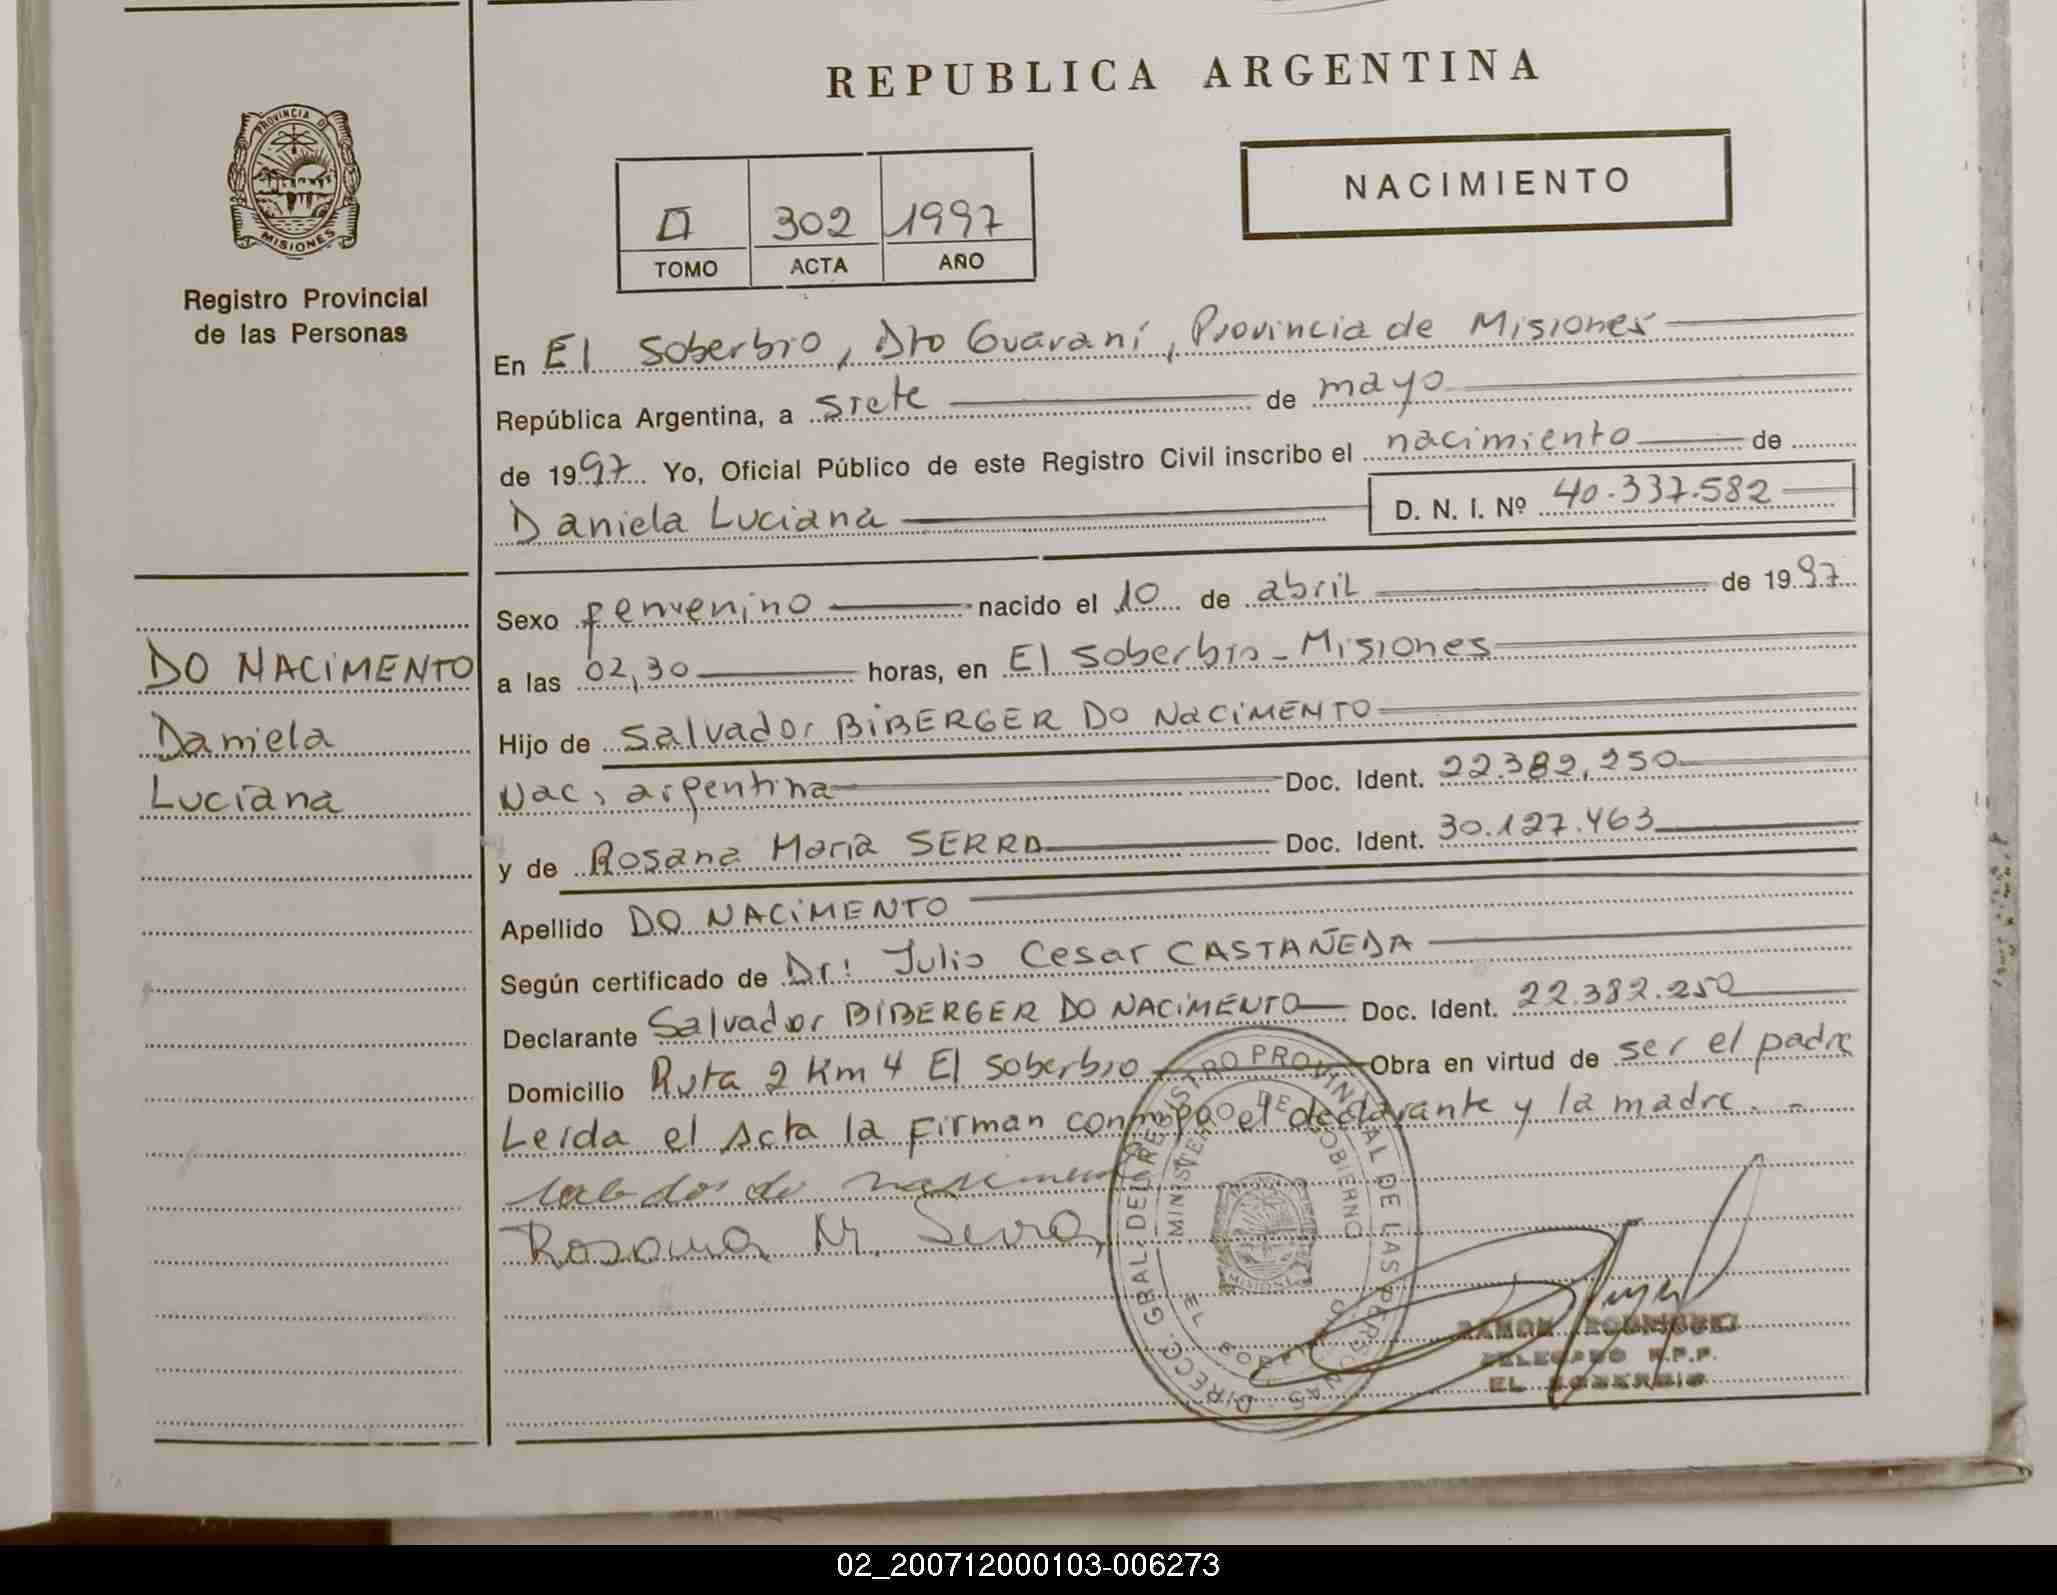 REPUBLICA ARGENTINA
PROVINCIA DE
MISIONES
Registro Provincial
de las Personas
NACIMIENTO
II 302 1997
TOMO ACTA AÑO
En El Soberbio, Dto Guaraní, Provincia de Misiones
República Argentina, a siete de mayo
de 1997 Yo, Oficial Público de este Registro Civil inscribo el nacimiento de
Daniela Luciana D. N. I. Nº 40.337.582
Sexo femenino nacido el 10 de abril de 1997
DO NACIMENTO
Daniela
Luciana
a las 02,30 horas, en El Soberbio - Misiones
Hijo de Salvador BIBERGER DO NACIMENTO
Nac, argentina Doc. Ident. 22.382,250
y de Rosana Maria SERRA Doc. Ident. 30.127.463
Apellido DO NACIMENTO
Según certificado de Dr: Julio Cesar CASTAÑEDA
Declarante Salvador BIBERGER DO NACIMENTO Doc. Ident. 22.382.250
Domicilio Ruta 2 Km 4 El Soberbio Obra en virtud de ser el padre
Leída el Acta la Firman conmigo el declarante y la madre. -
Rosana M. Serra
DIRECC. GRAL. DEL REGISTRO PROVINCIAL DE LAS PERSONAS
MINISTERIO DE GOBIERNO
EL SOBERBIO
MISIONES
RAMON RODRIGUEZ
DELEGADO R.P.P.
EL SOBERBIO
02_200712000103-006273